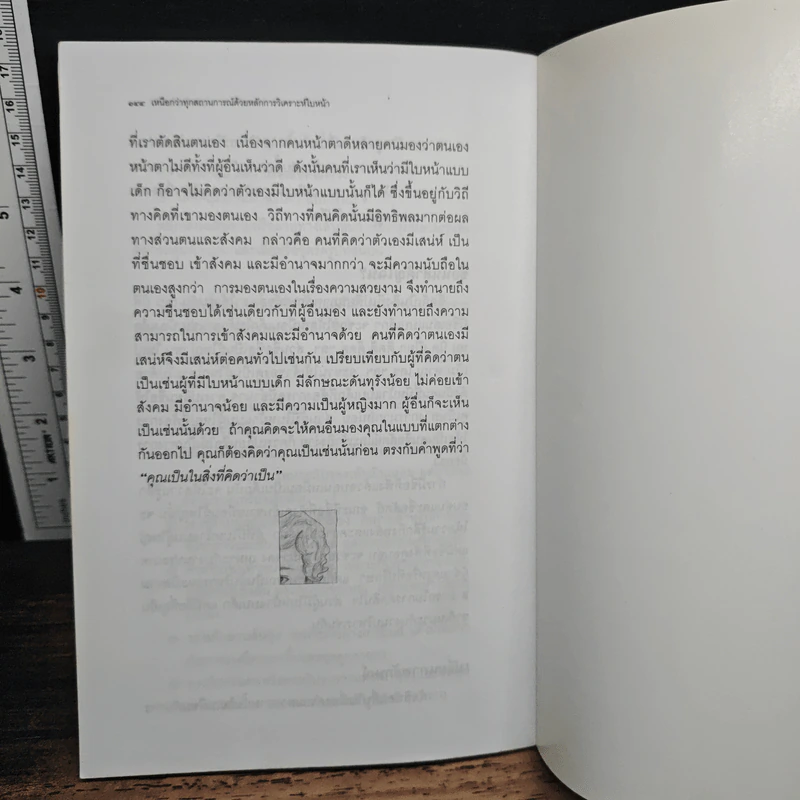 ๑๔๔ เหนือกว่าทุกสถานการณ์ด้วยหลักการวิเคราะห์ใบหน้า
ที่เราตัดสินตนเอง เนื่องจากคนหน้าตาดีหลายคนมองว่าตนเอง
หน้าตาไม่ดีทั้งที่ผู้อื่นเห็นว่าดี ดังนั้นคนที่เราเห็นว่ามีใบหน้าแบบ
เด็ก ก็อาจไม่คิดว่าตัวเองมีใบหน้าแบบนั้นก็ได้ ซึ่งขึ้นอยู่กับวิถี
ทางคิดที่เขามองตนเอง วิถีทางที่คนคิดนั้นมีอิทธิพลมากต่อผล
ทางส่วนตนและสังคม กล่าวคือ คนที่คิดว่าตัวเองมีเสน่ห์ เป็น
ที่ชื่นชอบ เข้าสังคม และมีอำนาจมากกว่า จะมีความนับถือใน
ตนเองสูงกว่า การมองตนเองในเรื่องความสวยงาม จึงทำนายถึง
ความชื่นชอบได้เช่นเดียวกับที่ผู้อื่นมอง และยังทำนายถึงความ
สามารถในการเข้าสังคมและมีอำนาจด้วย คนที่คิดว่าตนเองมี
เสน่ห์จึงมีเสน่ห์ต่อคนทั่วไปเช่นกัน เปรียบเทียบกับผู้ที่คิดว่าตน
เป็นเช่นผู้ที่มีใบหน้าแบบเด็ก มีลักษณะดันทุรังน้อย ไม่ค่อยเข้า
สังคม มีอำนาจน้อย และมีความเป็นผู้หญิงมาก ผู้อื่นก็จะเห็น
เป็นเช่นนั้นด้วย ถ้าคุณคิดจะให้คนอื่นมองคุณในแบบที่แตกต่าง
กันออกไป คุณก็ต้องคิดว่าคุณเป็นเช่นนั้นก่อน ตรงกับคำพูดที่ว่า
“คุณเป็นในสิ่งที่คิดว่าเป็น”